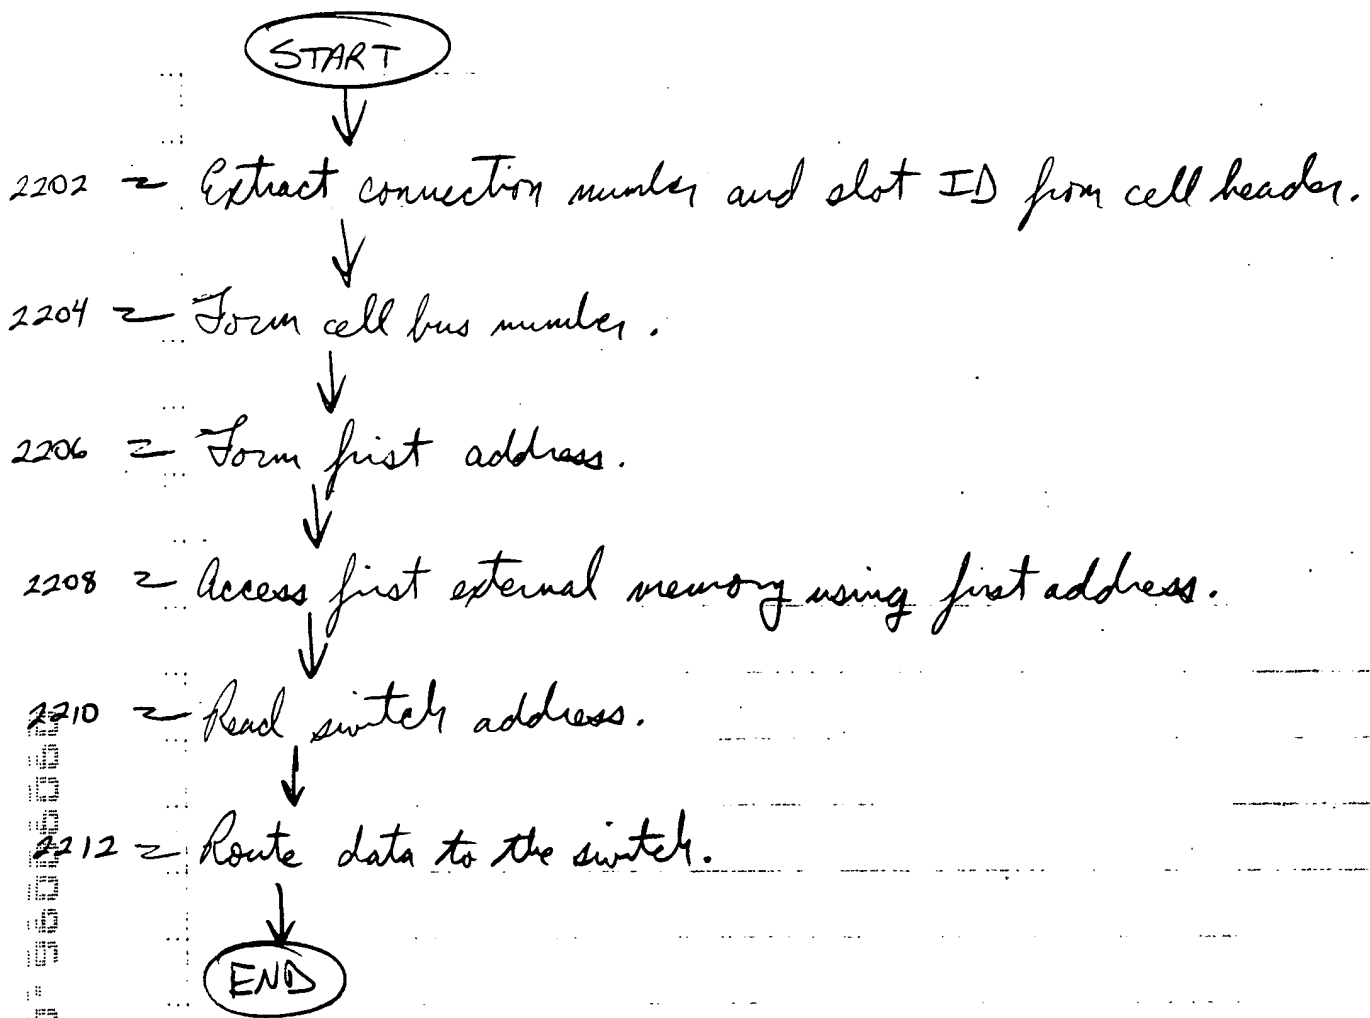 START
2202 Extract connection number and slot ID from cell header.
2204 Form cell bus number.
2206 Form first address.
2208 Access first external memory using first address.
2210 Read switch address.
2212 Route data to the switch.
END